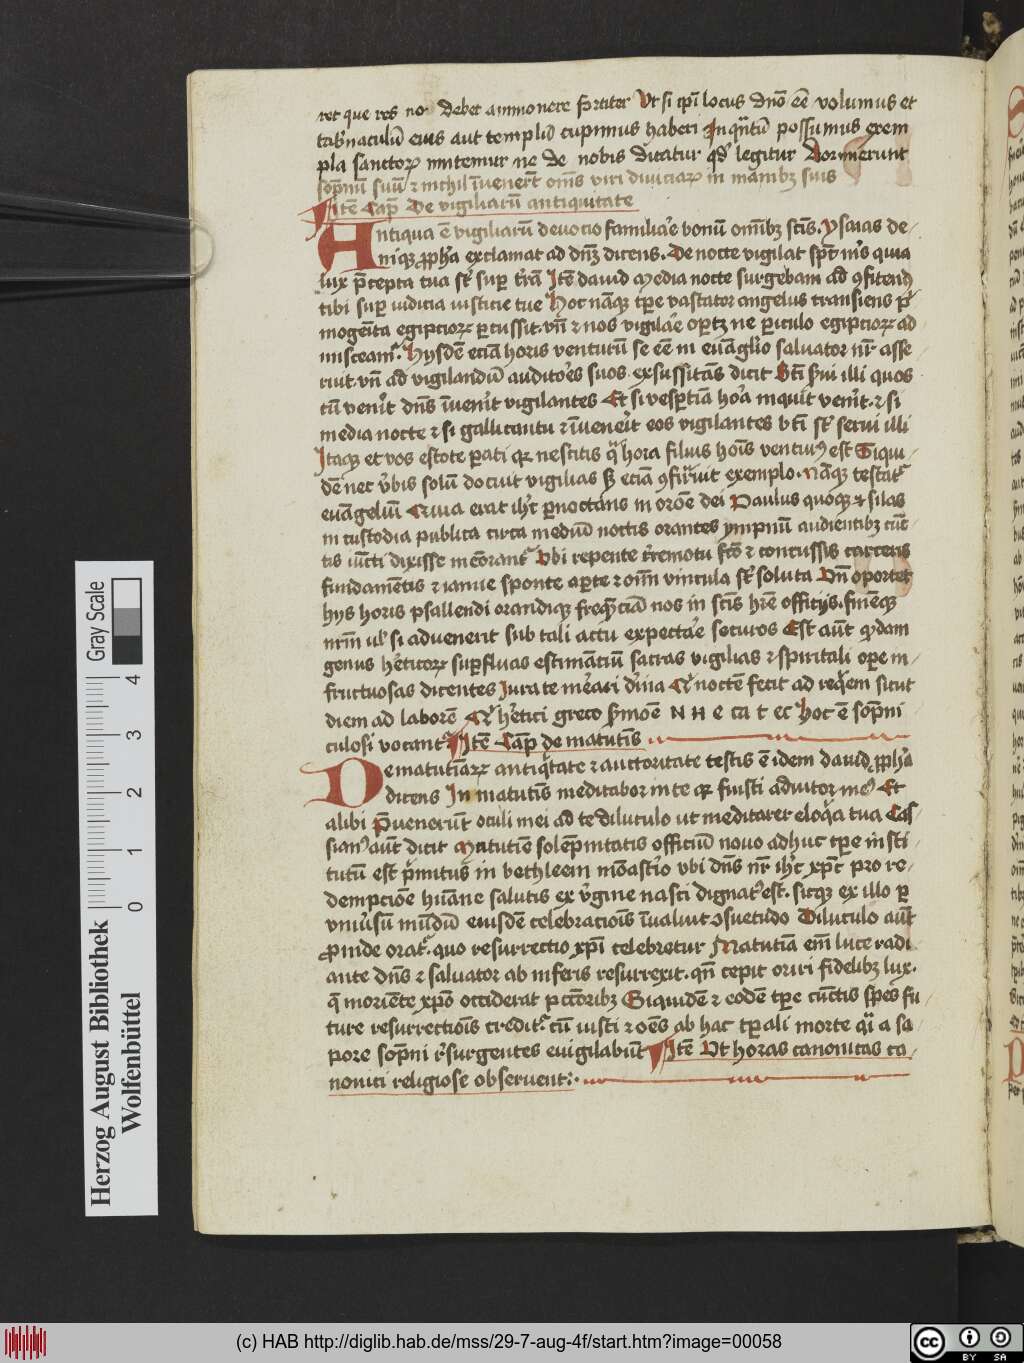 ret que res nos debet ammonere fortiter Ut si xpi locus dño eē volumus et
tab'naculū eius aut templū cupimus haberi Inqntū possumus exem
pla sanctoꝝ imitemur ne de nobis dicatur qd' legitur Dormierunt
sopnū suū ⁊ nichil īvenerūt oms viri diviciaꝝ in manibꝫ suis
Itē Cap De vigiliarū antiquitate
Antiqua ē vigiliarū devotio familia'e bonū omībꝫ scīs. Ysaias de-
niqꝫ ꝓpha exclamat ad dnꝫ dicens. De nocte vigilat spt mꝰs quia
lux p̄cepta tua st' sup trā Itē david Media nocte surgebam ad ꝯfitendꝰ
tibi sup iudicia iusticie tue Hoc nāqꝫ tpe vastator angelus transiens p'
mogeīta egipcioꝝ ꝑcussit. vn̄ ⁊ nos vigila'e oportꝫ ne ꝑiculo egipcioꝝ ad
misceam'. Hysdē eciā horis venturū se eē in euāglio salvator nr̄ asse
ruit. vn̄ ad vigilandū audito'es suos exsussitās dicit Bti s'ui illi quos
cū ven'it dn̄s īven'it vigilantes Et si vesptīa ho'a inquit ven'it. ⁊ si
media nocte ⁊ si gallicantu ⁊ īvene'it eos vigilantes bti st' servi illi
Itaqꝫ et vos estote ꝑati qꝛ nescitis q̄ hora filius hoīs venturꝰ est Siqui-
dē nec v'bis solū docuit vigilias sꝫ eciā ꝯfir'vit exemplo. Nāqꝫ testat'
evāgeliū Quia erat ih'c ꝑnoctans in orōe dei Paulus quoqꝫ ⁊ silas
in custodia publica circa mediū noctis orantes ympnū audientibꝫ cūc-
tis iūcti dixisse mēorant' Ubi repente tr̄emotu fcō ⁊ concussis carceris
fundamētis ⁊ ianue sponte apte ⁊ oīm vincula st' soluta Un̄ oportet
hys horis psallendi orandiqꝫ freq̄ciā nos in scīs hr̄e officiys. finēqꝫ
nrm ul' si advenerit sub tali actu expecta'e securos Est aūt q'dam
genus h'eticoꝝ supfluas estimāciū sacras vigilias ⁊ spiritali ope in-
fructuosas dicentes Iura te me'ari dīna q' noctē fecit ad req̄em sicut
diem ad laborē Q' h'etici greco s'moē N H e ca t ec hoc ē sopni
culosi vocant' Itē Cap de matutīs
De matutiaꝝ antiq̄tate ⁊ auctoritate testis ē idem david ꝓph'a
dicens In matutīs meditabor in te qꝛ fuisti adiutor meꝰ Et
alibi P̄venerūt oculi mei ad te diluculo ut meditarer eloq̄a tua Cas-
sianꝰ aūt dicit Matutiē solepnitatis officiū novo adhuc tpe insti
tutū est pri'mitus in bethleem mōast'io ubi dn̄s nr̄ ih'c xpc̄ pro re-
demptiōe huāne salutis ex v'gine nasci dignatꝰ est. sicqꝫ ex illo ꝑ
univ'sum mūdū eiusdē celebraciois īvaluit ꝯsuetudo Diluculo aūt
ꝓinde orat'. quo resurrectio xpī celebretur Matutiā em̄ luce radi
ante dn̄s ⁊ salvator ab inferis resurrexit. qn̄ cepit oriri fidelibꝫ lux.
q̄ moriēte xpō occiderat pctōribꝫ Siquidē ⁊ eodē tpe cūctis spes fu-
ture resurrectiōis credit'. cū iusti ⁊ oēs ab hac tpali morte q̄i a so
pore sopni r'surgentes evigilabūt Itē Ut horas canonicas ca-
nonici religiose observent:·
Gray Scale
0 1 2 3 4
Herzog August Bibliothek
Wolfenbüttel
(c) HAB http://diglib.hab.de/mss/29-7-aug-4f/start.htm?image=00058
cc BY SA